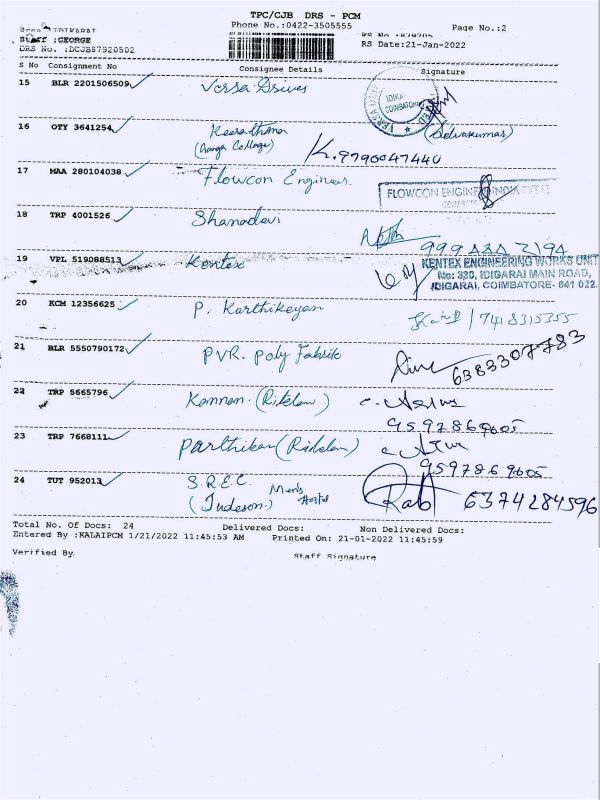 TPC/CJB DRS - PCM
Phone No.:0422-3505555 Page No.:2
Staff :GEORGE
RS Date:21-Jan-2022
DRS No. :DCJB87920502
S No Consignment No Consignee Details Signature
15 BLR 2201506509
IDIKA
COIMBATORE
16 OTY 3641254 Keerathna (Selvakumar)
(Ganga College) K. 9790047440
17 MAA 280104038 Flowcon Engineers.
FLOWCON ENGINEERS INDIA PVT LTD
18 TRP 4001526 Shanadevi
19 VPL 519088513 Kentex
KENTEX ENGINEERING WORKS UNIT
No: 330, IDIGARAI MAIN ROAD,
IDIGARAI, COIMBATORE- 641 022.
20 KCM 12356625 P. Karthikeyan
7418315355
21 BLR 5550790172 PVR. Poly Fabrik
6383307783
22 TRP 5665796 Kannan.
9597869605
23 TRP 7668111 Parthiban
9597869605
24 TUT 952013 S.R.E.C. Men's Hostel
(Judeson) 6374284596
Total No. Of Docs: 24 Delivered Docs: Non Delivered Docs:
Entered By :KALAIPCM 1/21/2022 11:45:53 AM Printed On: 21-01-2022 11:45:59
Verified By Staff Signature